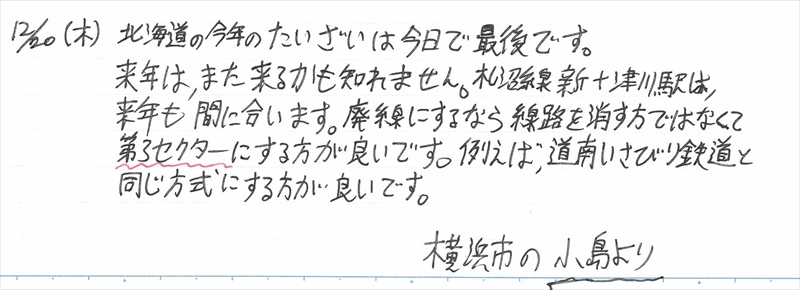 12/20(木) 北海道の今年のたいざいは今日で最後です。
来年は,また来るかも知れません。札沼線新十津川駅は,
来年も間に合います。廃線にするなら線路を消す方ではなくて
第3セクターにする方が良いです。例えば,道南いさびり鉄道と
同じ方式にする方が良いです。
横浜市の小島より